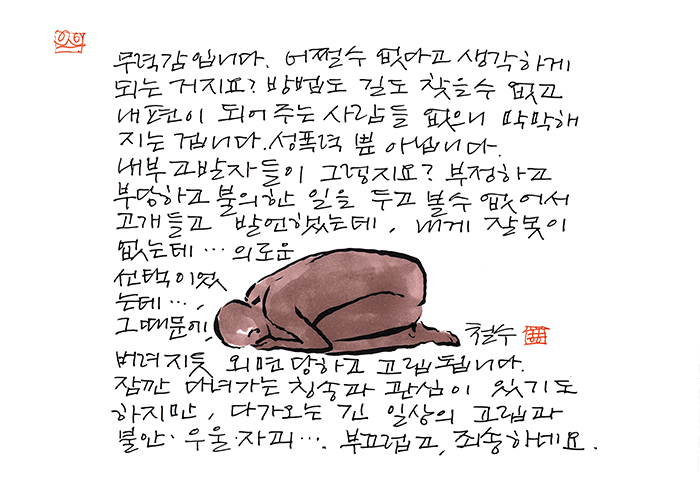 무력감입니다. 어쩔수 없다고 생각하게
되는 거지요? 방법도 길도 찾을수 없고
내편이 되어 주는 사람들 없으니 막막해
지는 겁니다. 성폭력 뿐 아닙니다.
내부고발자들이 그렇지요? 부정하고
부당하고 불의한 일을 두고 볼수 없어서
고개들고 발언했는데, 내게 잘못이
없는데… 의로운
선택이였
는데…,
그때문에,
철수
버려지듯 외면당하고 고립됩니다.
잠깐 다녀가는 칭송과 관심이 있기도
하지만, 다가오는 긴 일상의 고립과
불안·우울·자괴…. 부끄럽고, 죄송하네요.